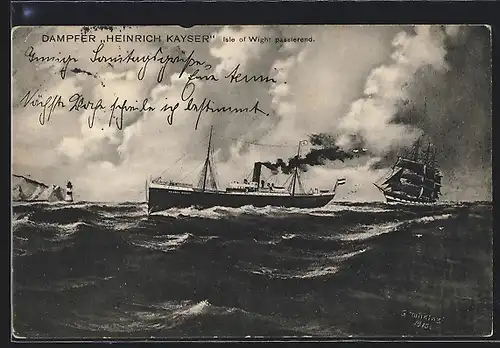 DAMPFER „HEINRICH KAYSER" Isle of Wight passierend.
Innige Samstagsgrüsse
Eure
Nächste Woche schreibe ich bestimmt.
1913.